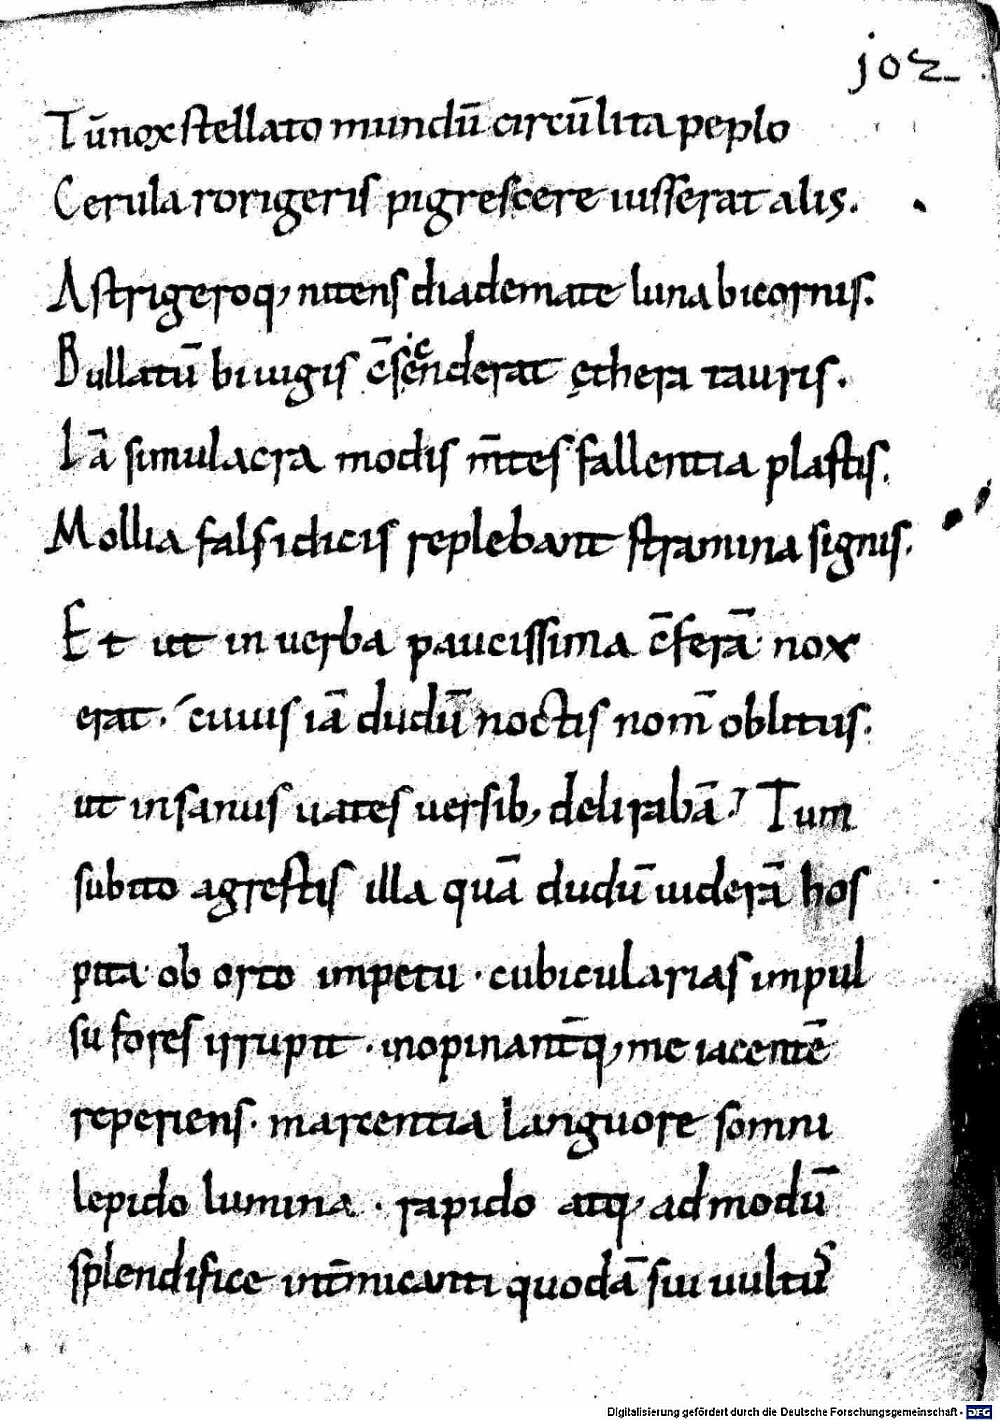 joz
Tūnox stellato mundū circūlita peplo
Cerula rorigeris pigrescere iusserat alis.
Astrigeroq, nitens diademate luna bicornis.
Bullatū biiugis c̄scenderat ęthera tauris.
Iā simulacra modis m̄tes fallentia plastis.
Mollia falsidicis replebant stramina signis.
Et ut in uerba paucissima c̄ferā nox
erat. cuius iā dudū noctis nom̄ oblitus.
ut insanus uates uersib, delirabā. Tum
subito agrestis illa quā dudū uiderā hos
pita ob orto impetu · cubicularias impul
su fores irrupit · inopinant̄q, me iacentē
reperiens. marcentia languore somni
lepido lumina · rapido atq, admodū
splendifice int̄micanti quodā sui uultus
Digitalisierung gefördert durch die Deutsche Forschungsgemeinschaft - DFG